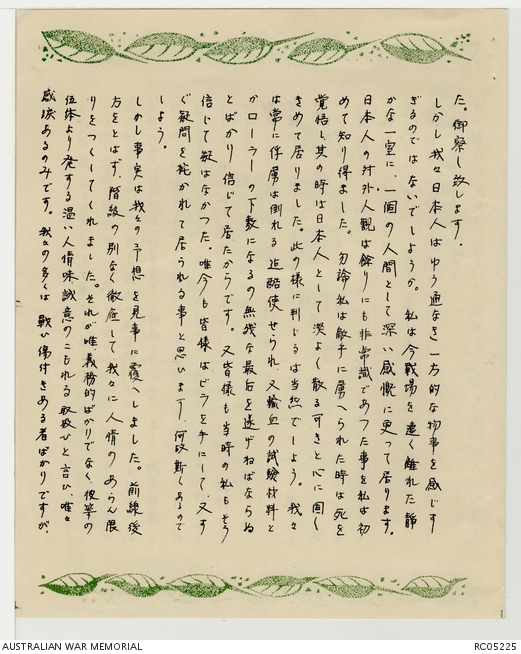 た。御察し致します。
しかし我々日本人はゆう通なき一方的な物事を感じす
ぎるのではないでしようか。私は今戦場を遠く離れた静
かな一室に、一個の人間として深い感慨に更って居ります。
日本人の対外人観は餘りにも非常識であつた事を私は初
めて知り得ました。勿論私は敵手に虜へられた時は死を
覚悟し其の時は日本人として潔よく散る可きと心に固く
きめて居りました。此の様に判じるは当然でしよう。我々
は常に俘虜は倒れる迄酷使せられ又輸血の試験材料と
かローラーの下敷になるの無残な最後を遂げねばならぬ
とばかり信じて居たからです。又皆様も当時の私もそう
信じて疑はなかつた。唯今も皆様はビラを手にして、又す
ぐ疑問を抱かれて居られる事と思います、何故斯くあるので
しよう。
しかし事実は我々の予想を見事に覆へしました。前線後
方をとはず、階級の別なく徹底して我々に人情のあらん限
りをつくしてくれました。それが唯、義務的ばかりでなく、彼等の
伍体より発する温い人情味誠意のこもれる取扱ひと言ひ、唯々
感涙あるのみです。我々の多くは戦い傷付きある者ばかりですが、
AUSTRALIAN WAR MEMORIAL
RC05225